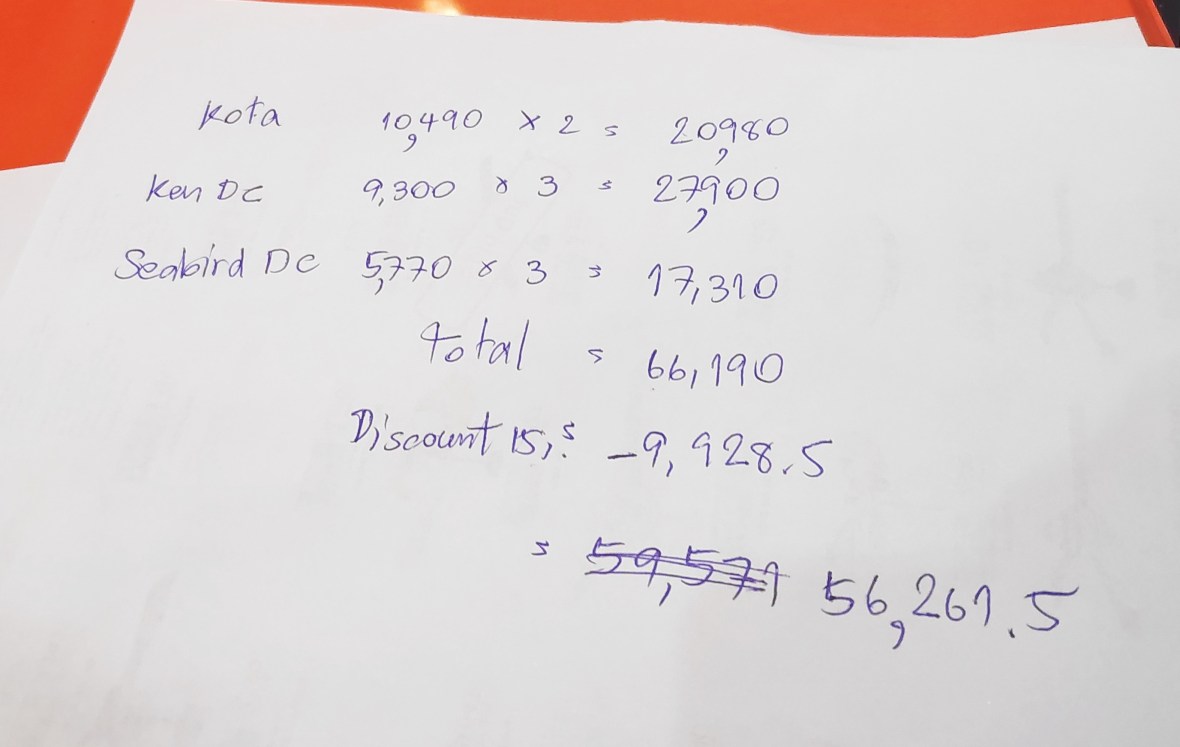 Kota 10,490 x 2 = 20,980
Ken DC 9,300 x 3 = 27,900
Seabird DC 5,770 x 3 = 17,310
total = 66,190
Discount 15% = -9,928.5
= 59,571 56,261.5